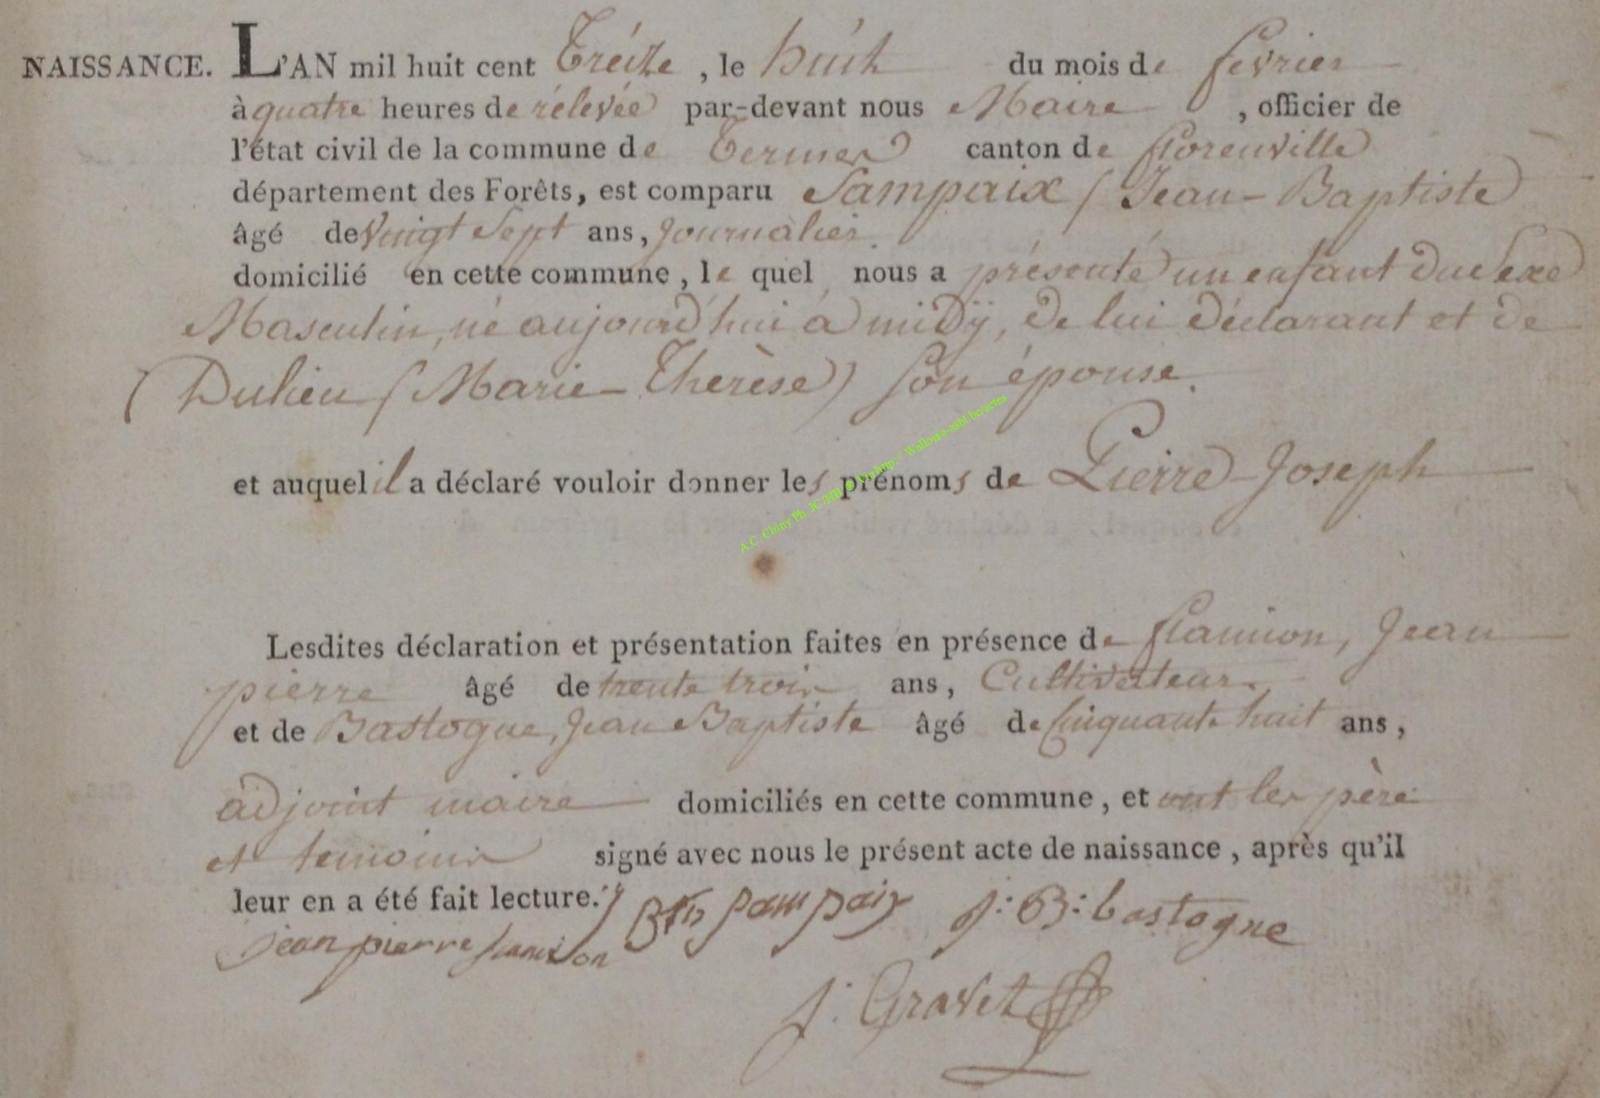 NAISSANCE. L'AN mil huit cent Tréize, le huit du mois de fevrier
à quatre heures de rélevée par-devant nous Maire, officier de
l'état civil de la commune de Termes canton de florenville
département des Forêts, est comparu Sampaix (Jean-Baptiste)
âgé de Vingt Sept ans, Journalier.
domicilié en cette commune, le quel nous a présenté un enfant du Sexe
Masculin, né aujourd'hui à midÿ, de lui déclarant et de
(Dulieu (Marie-Thérèse) son épouse.
et auquel il a déclaré vouloir donner les prénoms de Pierre-Joseph
A.C. Chiny Ph.
Lesdites déclaration et présentation faites en présence de flamion, Jean
pierre âgé de trente trois ans, Cultivateur,
et de Bastogne, Jean Baptiste âgé de Cinquante huit ans,
adjoint maire domiciliés en cette commune, et ont les père
et temoins signé avec nous le présent acte de naissance, après qu'il
leur en a été fait lecture. J Bte Sampaix J: B: bastogne
jean pierre flamion
J: Gravet